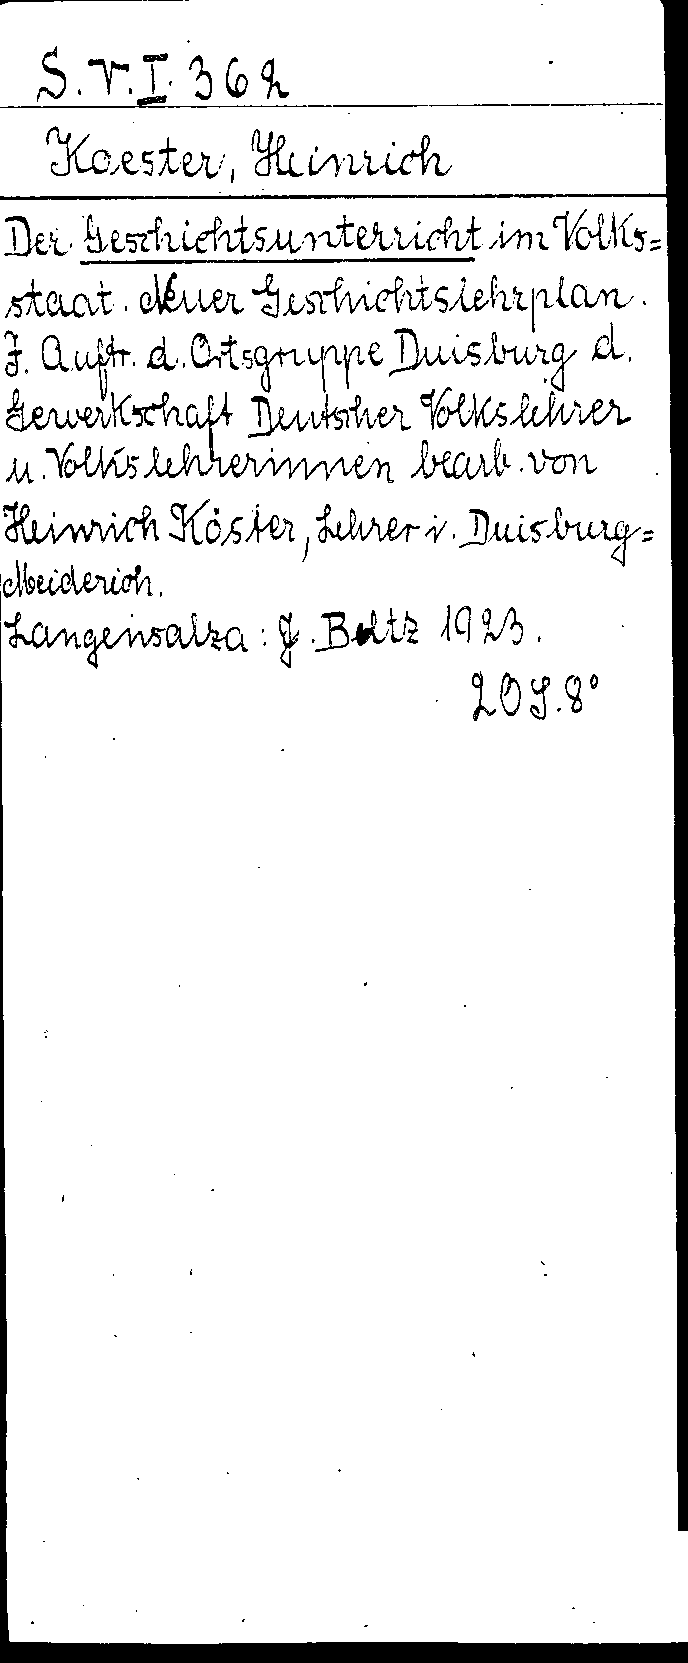 S.V.I. 362
Koester, Heinrich
Der Geschichtsunterricht im Volks=
staat. Neuer Geschichtslehrplan.
J. Auftr. d. Ortsgruppe Duisburg d.
Gewerkschaft Deutscher Volkslehrer
u. Volkslehrerinnen bearb. von
Heinrich Köster, Lehrer i. Duisburg=
Meiderich.
Langensalza: J. Beltz 1923.
20 S. 8°